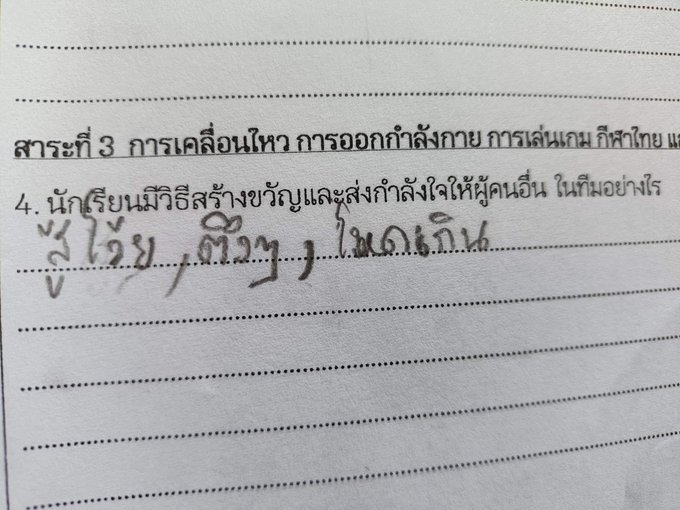 สาระที่ 3 การเคลื่อนไหว การออกกำลังกาย การเล่นเกม กีฬาไทย แล
4. นักเรียนมีวิธีสร้างขวัญและส่งกำลังใจให้ผู้คนอื่น ในทีมอย่างไร
สู้โว้ย, ตึงๆ, โหดเกิน